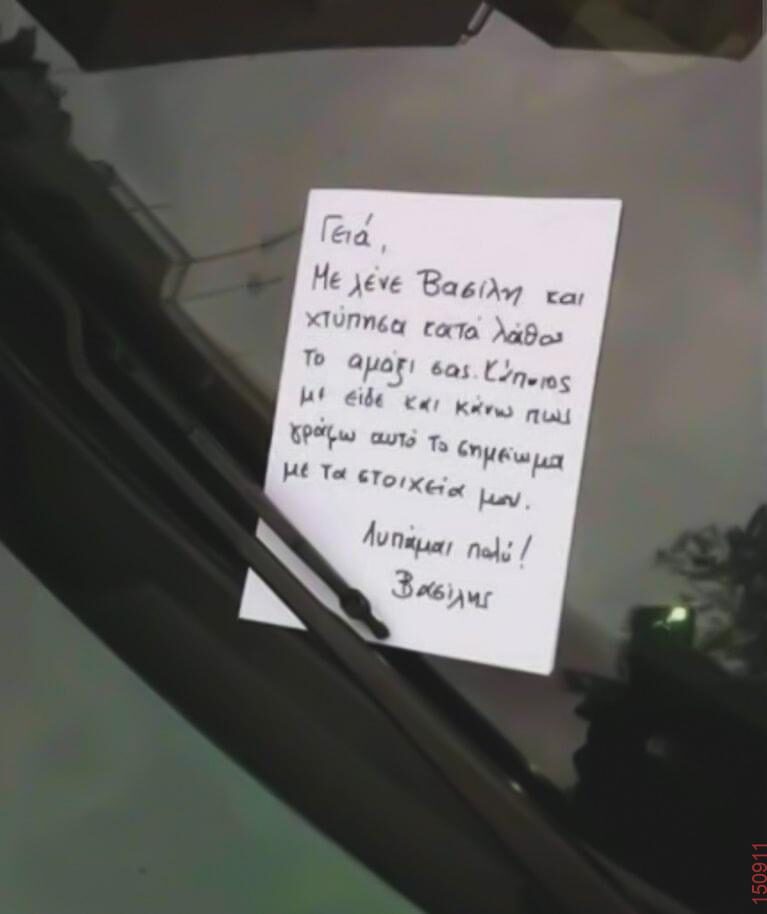 Γειά,
Με λένε Βασίλη και
χτύπησα κατά λάθος
το αμάξι σας. Κάποιος
με είδε και κάνω πως
γράφω αυτό το σημείωμα
με τα στοιχεία μου.
Λυπάμαι πολύ!
Βασίλης
150911